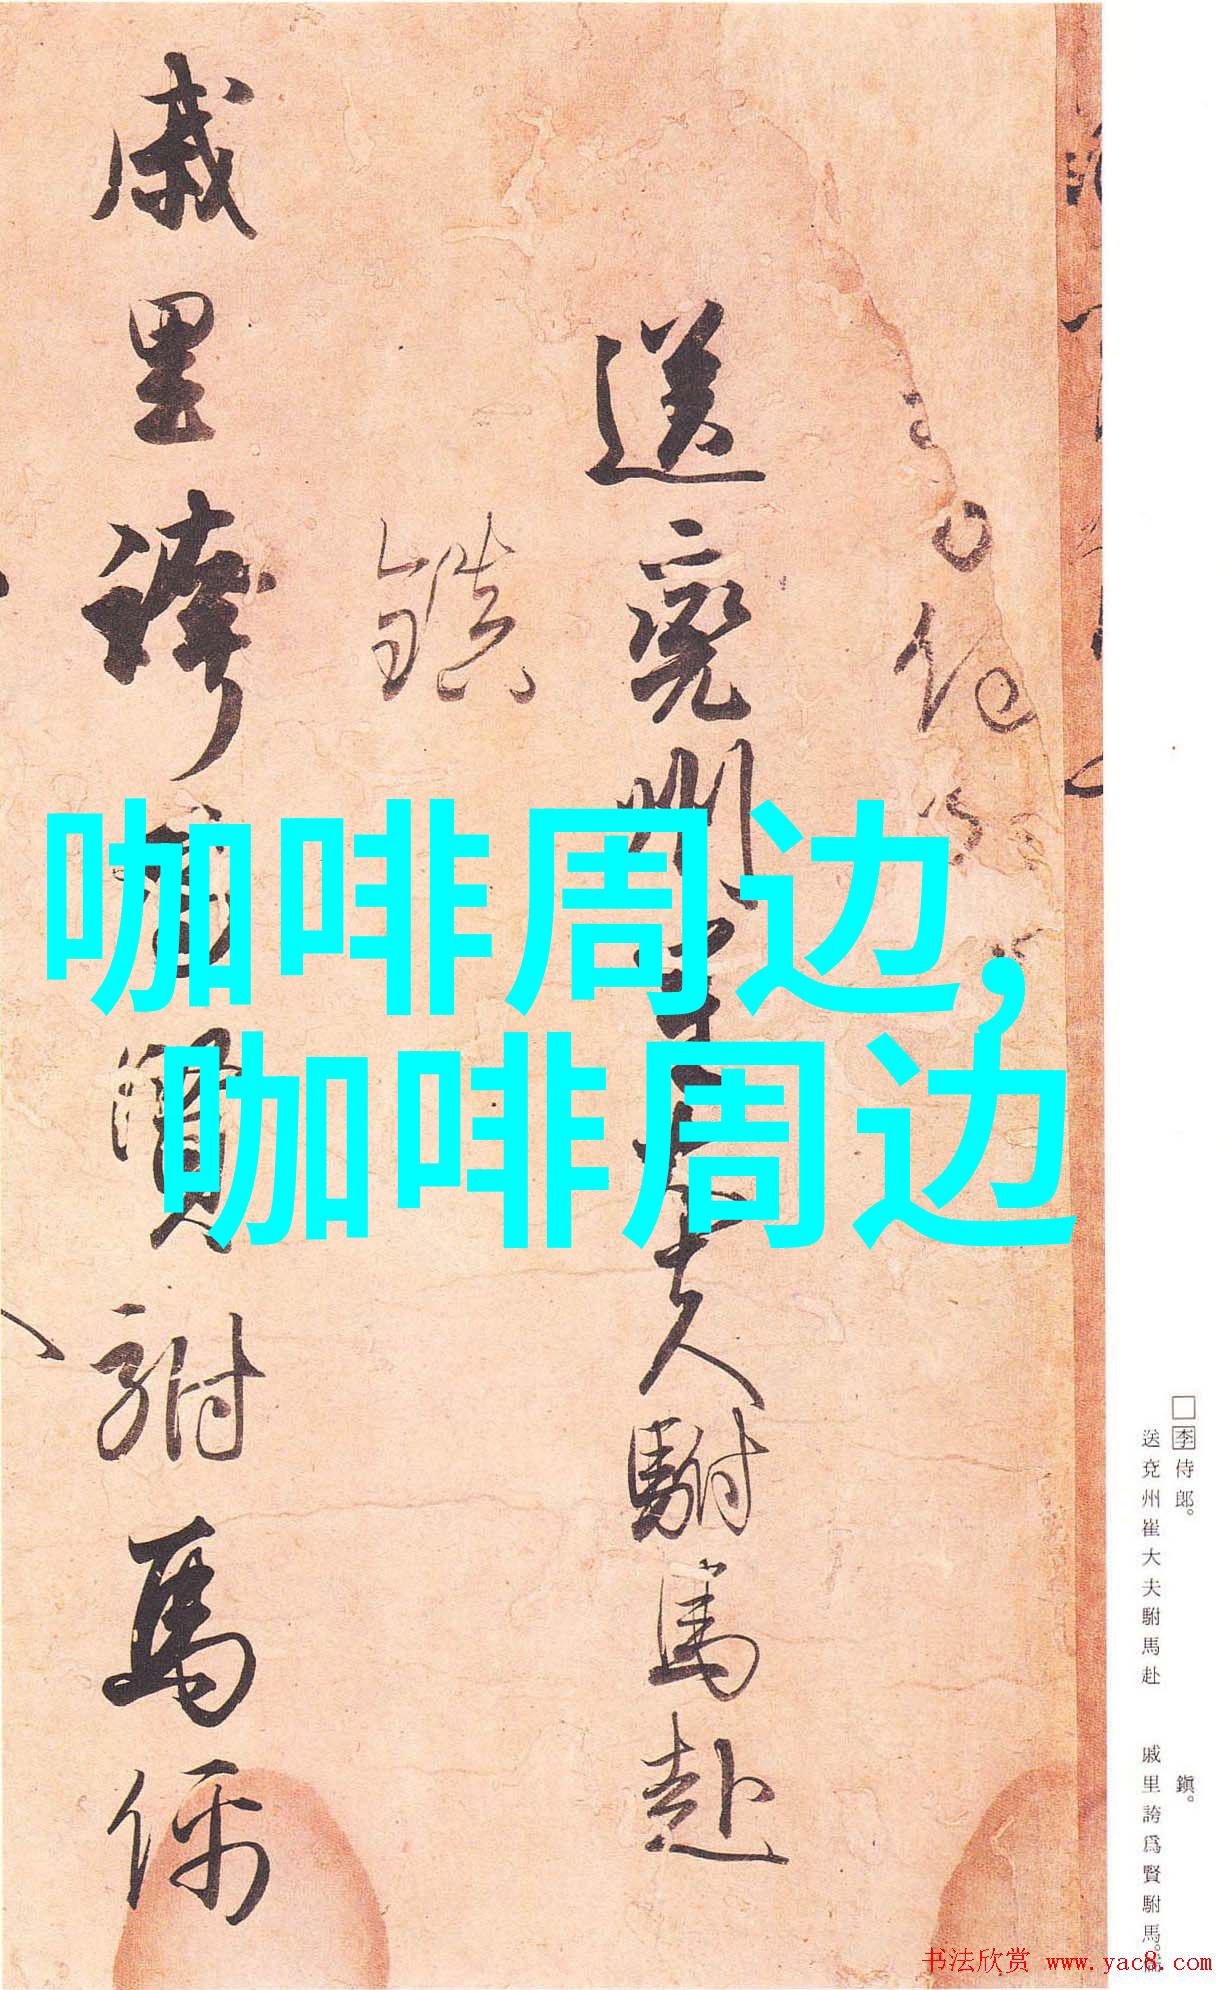 送兖州崔大夫駙馬赴
鎮
戚里誇為賢駙馬儒
咖啡周边，
咖啡周边
李侍郎。
送兖州崔大夫駙馬赴
鎮。
戚里誇爲賢駙馬。儒
书法欣赏 www.yac8.com